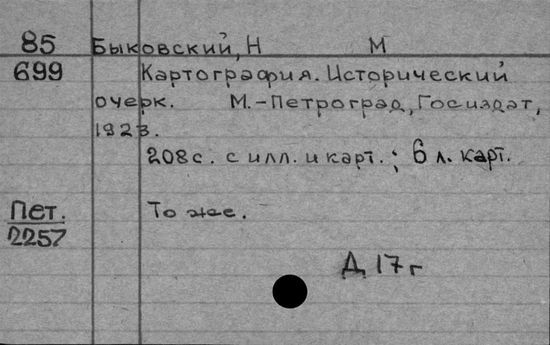 85 Быковский, Н М
699 Картография. Исторический
очерк. М.-Петроград, Госиздат,
1923.
208с. с илл. и карт.; 6 л. карт.
Пет. То же.
2257
Д 17г